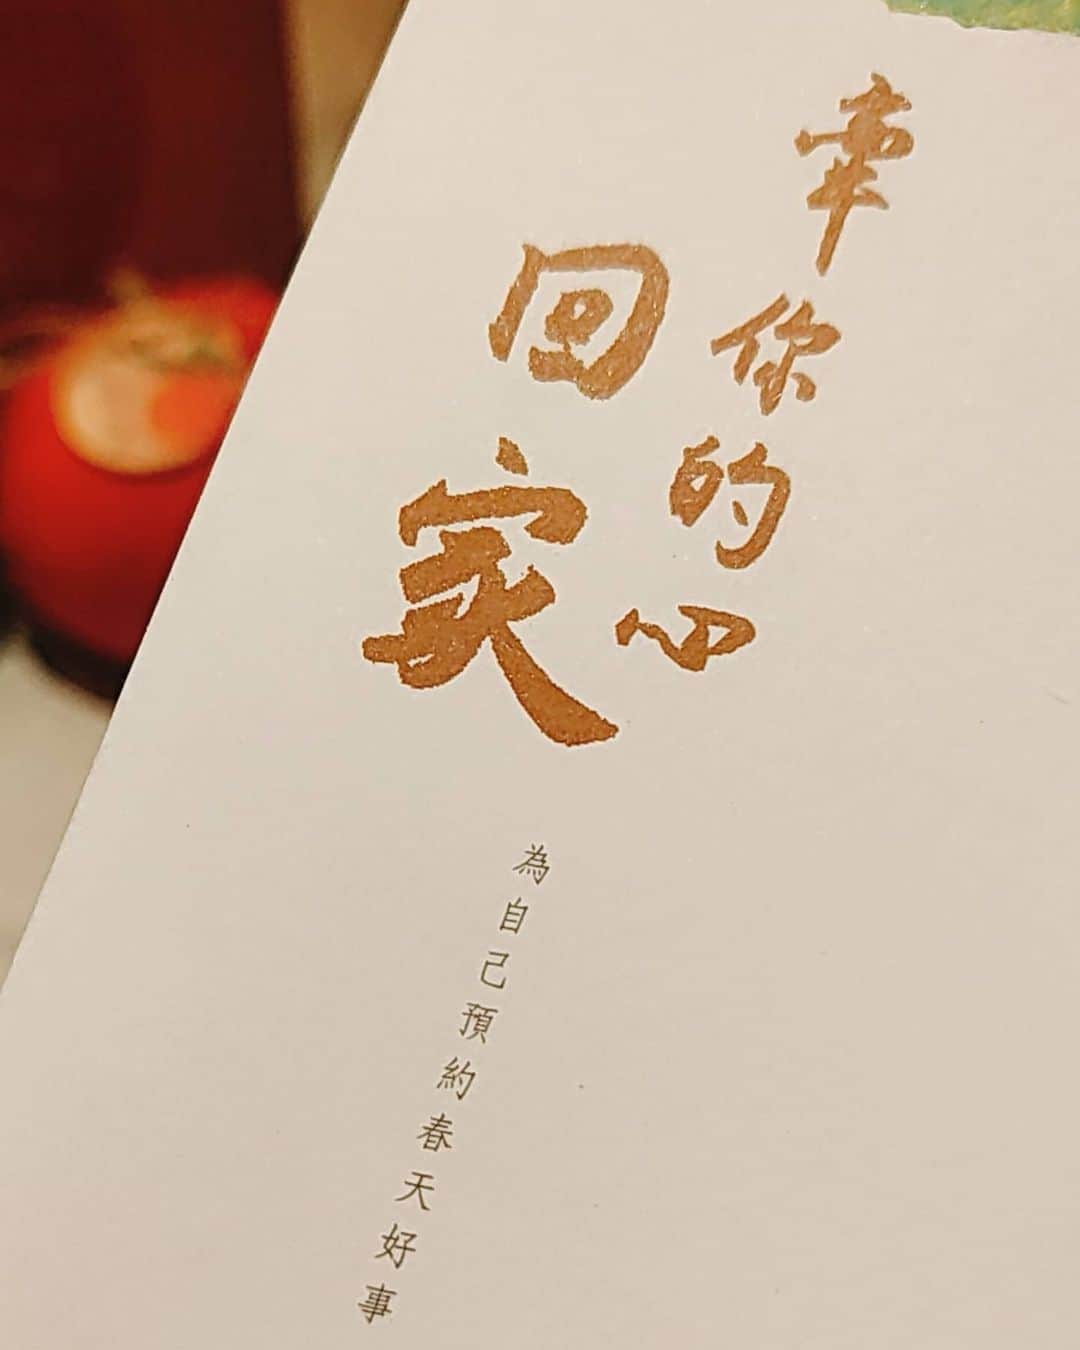 牽你的心
回家
為自己預約春天好事